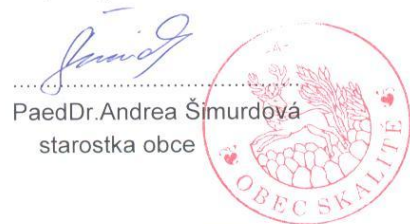 PaedDr.Andrea Šimurdová
starostka obce
OBEC SKALITÉ